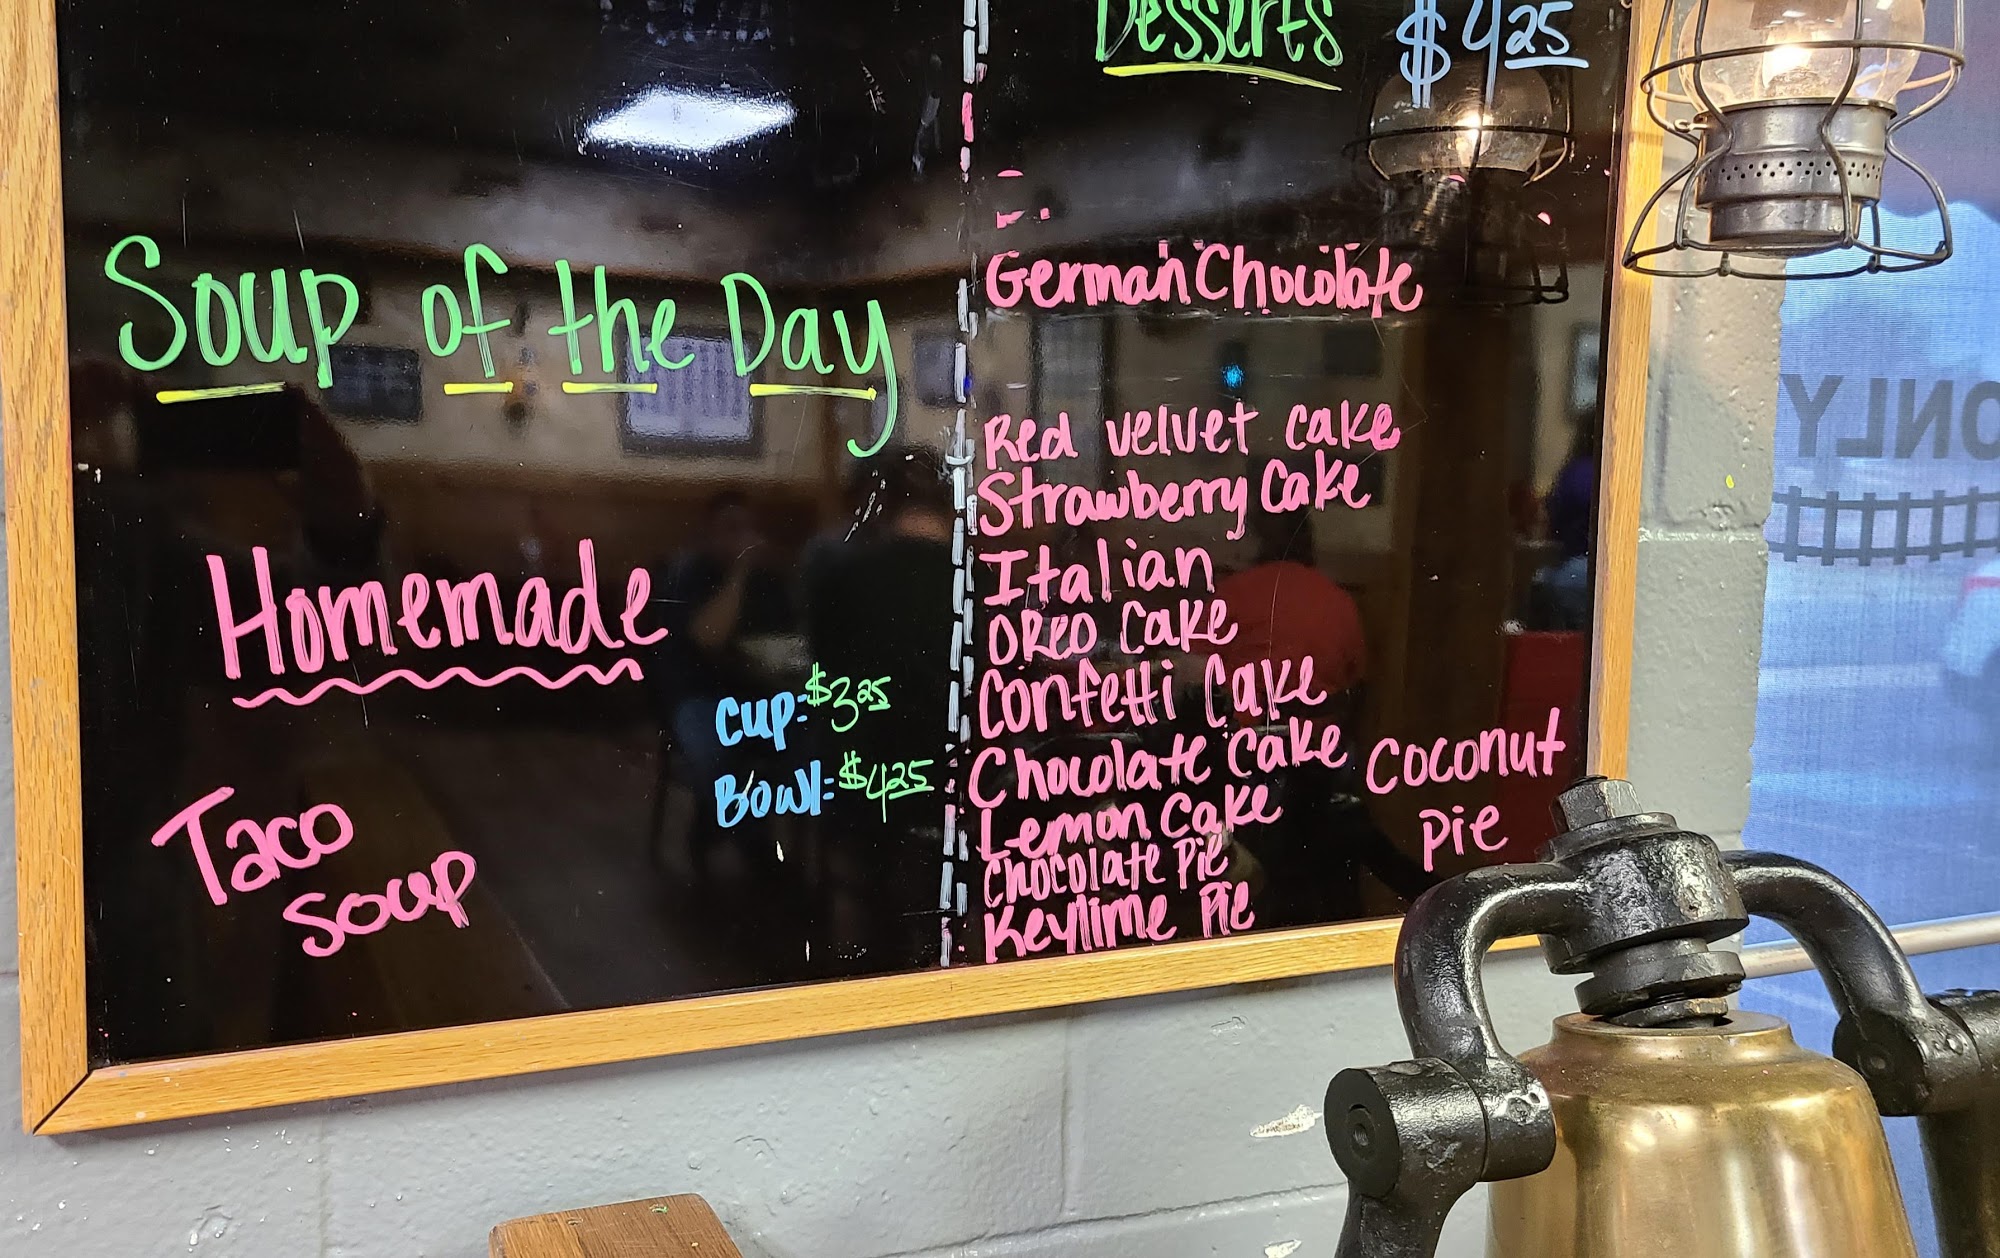 Soup of the Day
Homemade
Cup: $3.25
Bowl: $4.25
Taco
Soup
Desserts $4.25
German Chocolate
Red velvet cake
Strawberry Cake
Italian
OREO Cake
Confetti Cake
Chocolate Cake
Lemon Cake
Chocolate Pie
Keylime Pie
Coconut
Pie
ONLY